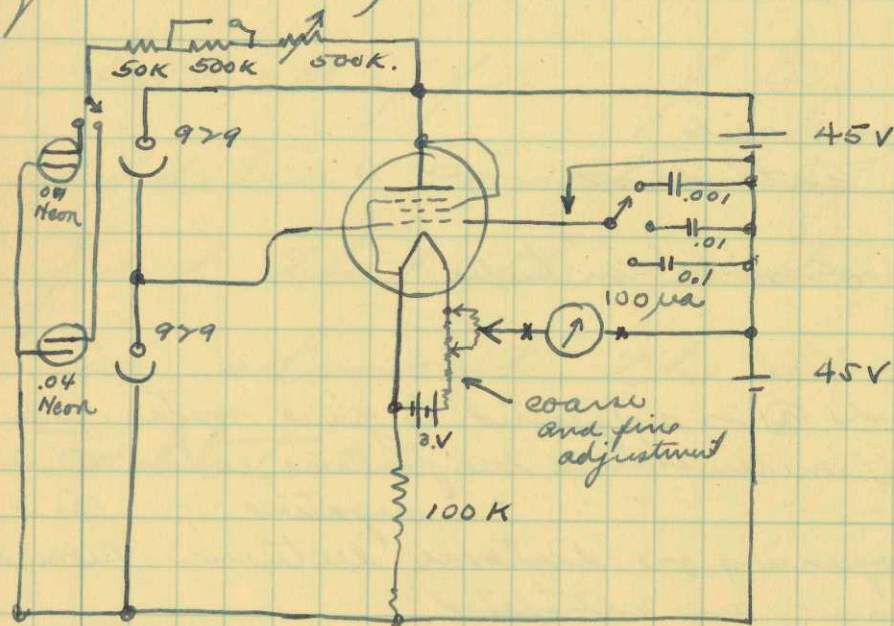 50K 500K 500K.
929
45V
.04
Neon
.001
.01
0.1
100 μa
929
.04
Neon
45V
3.V
coarse
and fine
adjustment
100 K